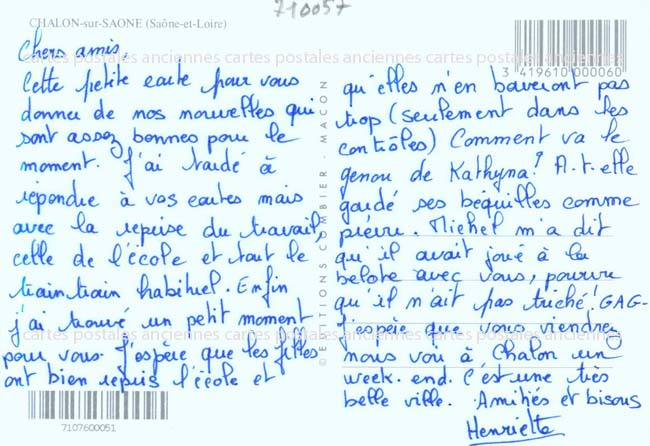 710057
CHALON-sur-SAONE (Saône-et-Loire)
Chers amis,
cartes postales anciennes cartes postales anciennes cartes postales anciennes cartes postales anciennes
Cette petite carte pour vous
donner de nos nouvelles qui
sont assez bonnes pour le
moment. J'ai tardé à
répondre à vos cartes mais
avec la reprise du travail,
celle de l'école et tout le
train train habituel. Enfin
j'ai trouvé un petit moment
pour vous. J'espère que les filles
ont bien repris l'école et
7107600051
© EDITIONS COMBIER - MACON
3 419610 000060
qu'elles n'en baveront pas
trop (seulement dans les
contrôles) Comment va le
genou de Kathyna? A.t.elle
gardé ses béquilles comme
prévu. Michel m'a dit
qu'il avait joué à la
belote avec vous, pourvu
qu'il n'ait pas triché! GAG-
J'espère que vous viendrez
nous voir à Chalon un
week. end. C'est une très
belle ville. Amitiés et bisous
Henriette
cartes postales anciennes cartes postales anciennes cartes postales anciennes cartes postales anciennes